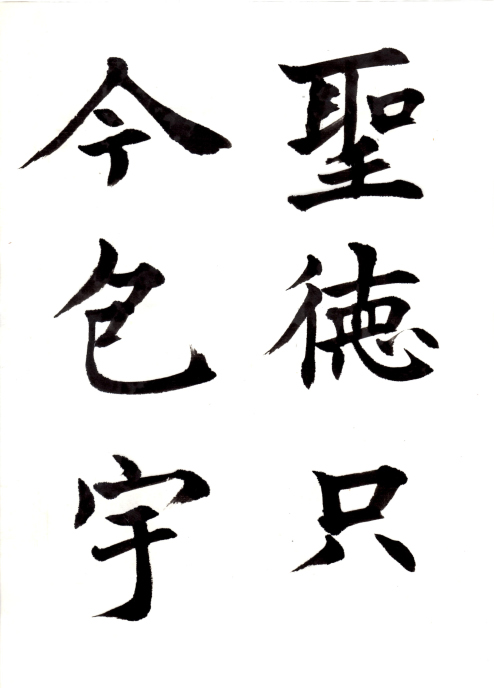 聖徳只
今包宇